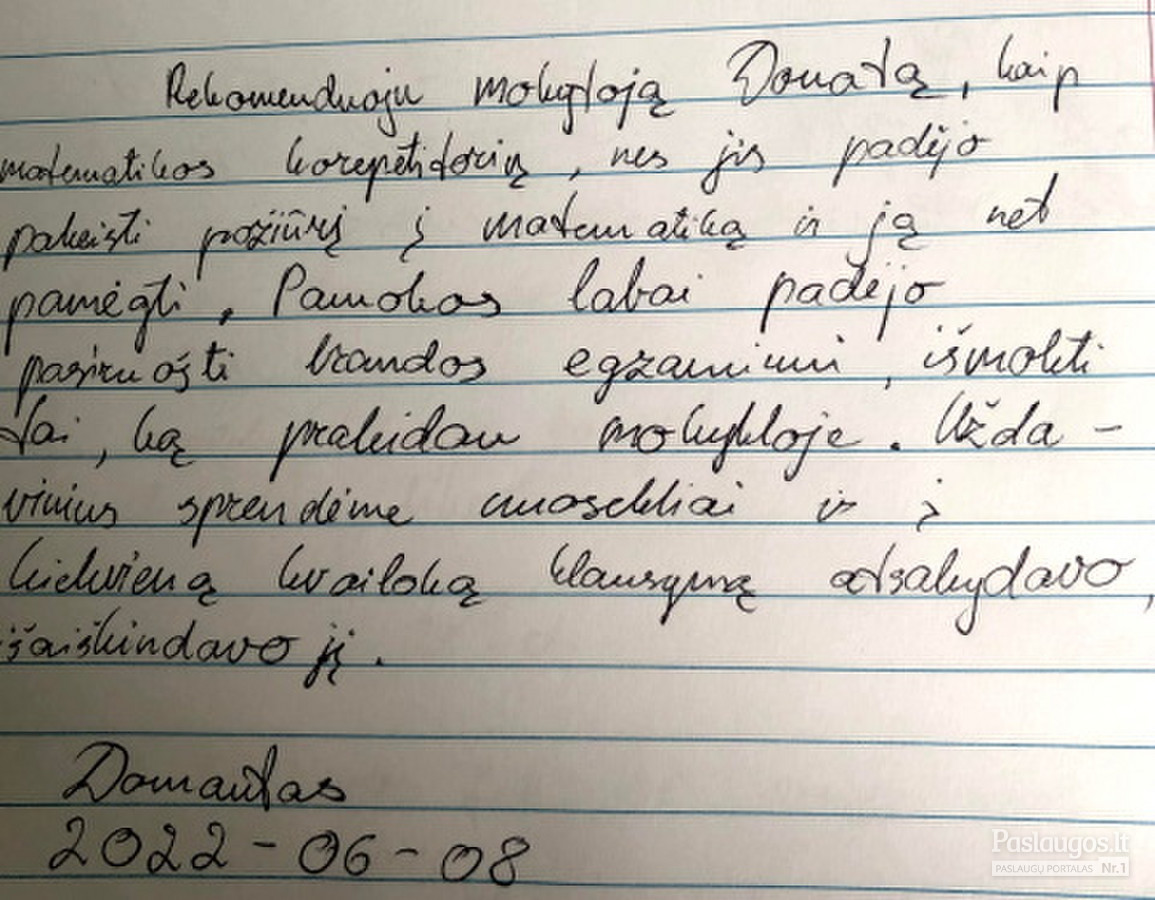 Rekomenduoju mokytoją Donatą, kaip
matematikos korepetitorių, nes jis padėjo
pakeisti požiūrį į matematiką ir ją net
pamėgti. Pamokos labai padėjo
pasiruošti brandos egzaminui, išmokti
tai, ką praleidau mokykloje. Užda-
vinius sprendėme nuosekliai ir į
kiekvieną kvailoką klausymą atsakydavo,
išaiškindavo jį.
Domantas
2022-06-08
Paslaugos.lt
PASLAUGŲ PORTALAS Nr.1